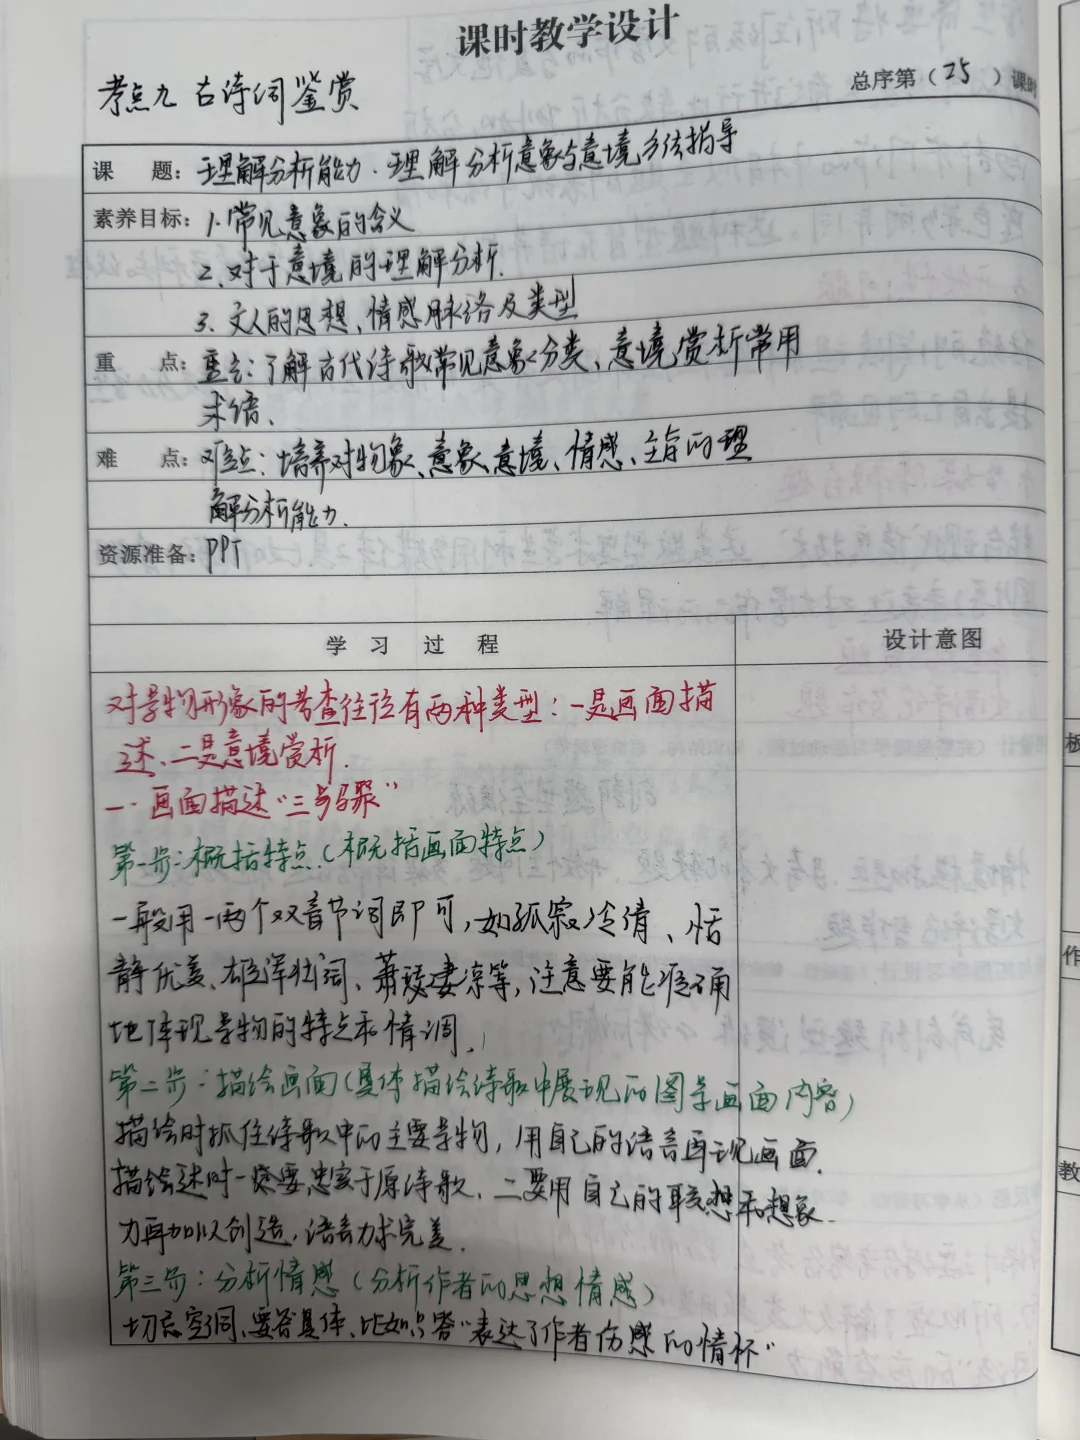 课时教学设计
考点九 古诗词鉴赏
总序第（25）课时
课 题：理解分析能力·理解分析意象与意境方法指导
素养目标：1.常见意象的含义
2.对于意境的理解分析.
3.文人的思想、情感脉络及类型
重 点：重点：了解古代诗歌常见意象分类、意境赏析常用
术语.
难 点：难点：培养对物象、意象、意境、情感、主旨的理
解分析能力.
资源准备：PPT
学 习 过 程
设计意图
对景物形象的考查往往有两种类型：一是画面描
述、二是意境赏析.
一.画面描述“三步骤”
第一步：概括特点.（概括画面特点）
一般用一两个双音节词即可，如孤寂冷清、恬
静优美、雄浑壮阔、萧瑟凄凉等，注意要能准确
地体现景物的特点和情调.
第二步：描绘画面（具体描绘诗歌中展现的图景画面内容）
描绘时抓住诗歌中的主要景物，用自己的语言再现画面.
描绘述时一要忠实于原诗歌、二要用自己的联想和想象
力再加以创造，语言力求完美.
第三步：分析情感（分析作者的思想情感）
切忌空洞，要答具体、比如只答“表达了作者伤感的情怀”
板
作
教